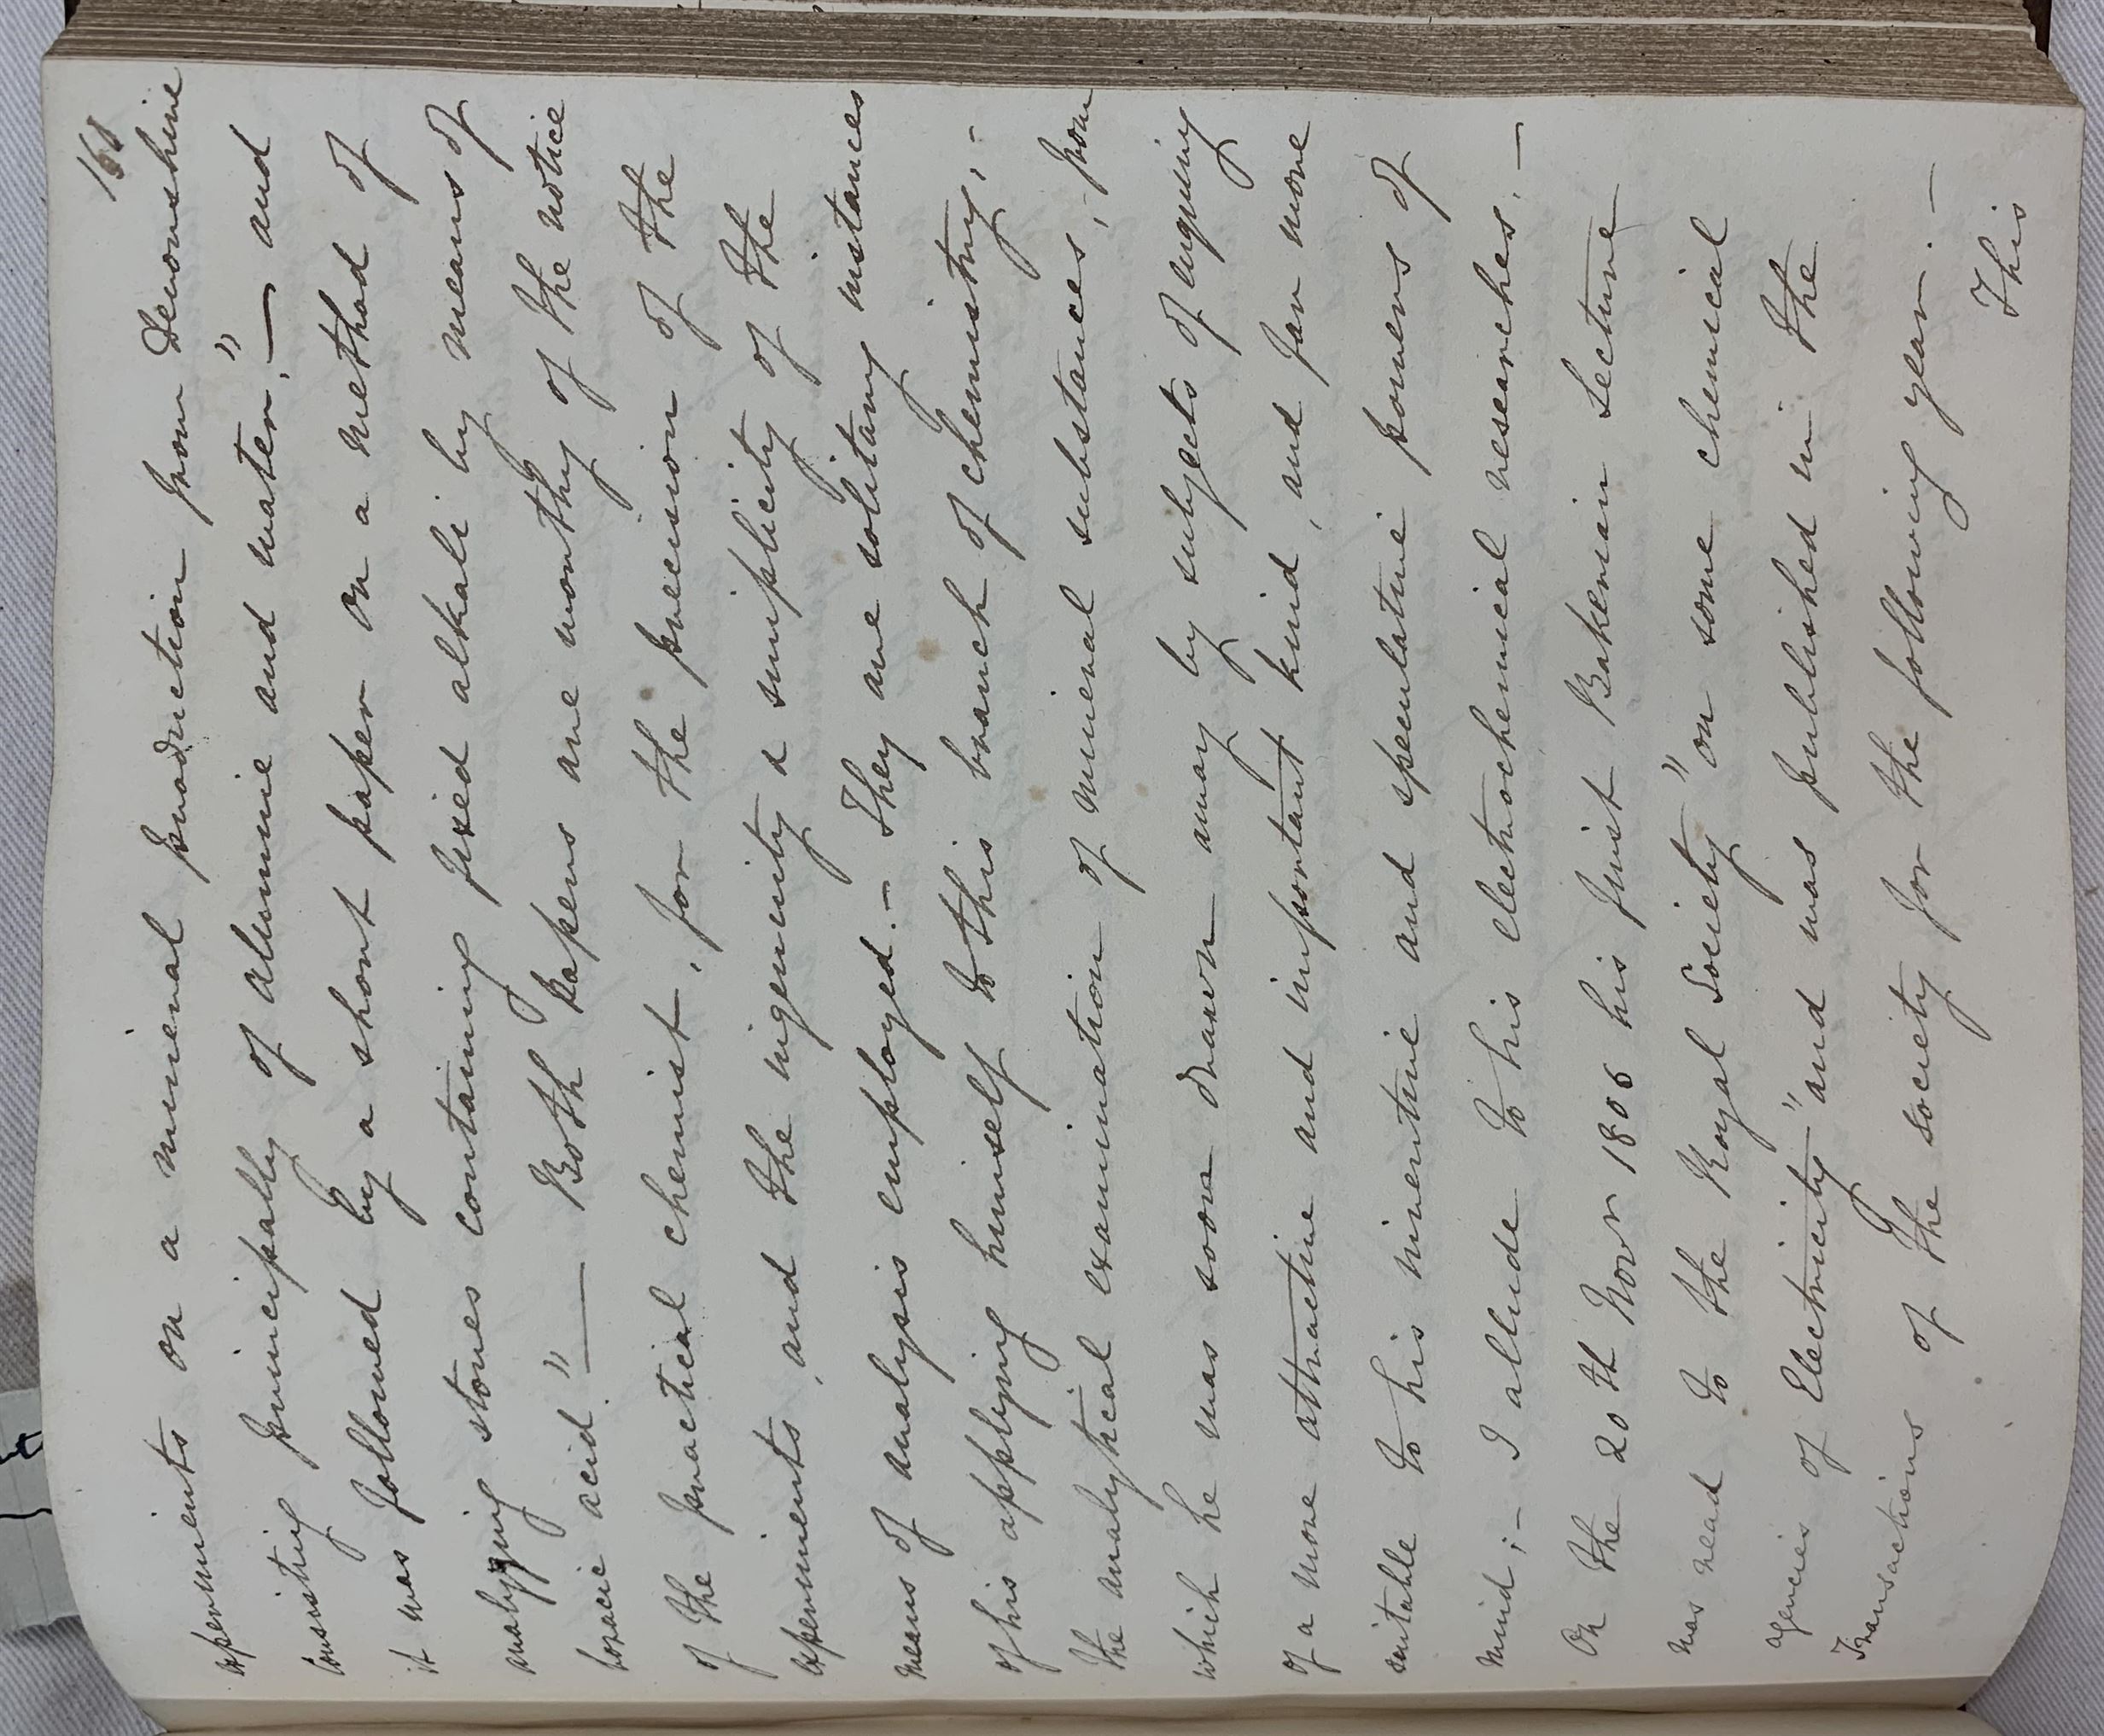 168
experiments on a mineral production from Devonshire
consisting principally of alumine and water," — and
it was followed by a short paper on a method of
analyzing stones containing fixed alkali by means of
boracic acid." — Both papers are worthy of the notice
of the practical chemist, for the precision of the
experiments, and the ingenuity & simplicity of the
means of analysis employed. — They are solitary instances
of his applying himself to this branch of chemistry, -
the analytical examination of mineral substances, - from
which he was soon drawn away by subjects of enquiry
of a more attractive and important kind, and far more
suitable to his inventive and speculative powers of
mind; - I allude to his electrochemical researches. —
On the 20th Novr 1806 his first Bakerian Lecture
was read to the Royal Society "on some chemical
agencies of Electricity" and was published in the
Transactions of the society for the following year. —
This